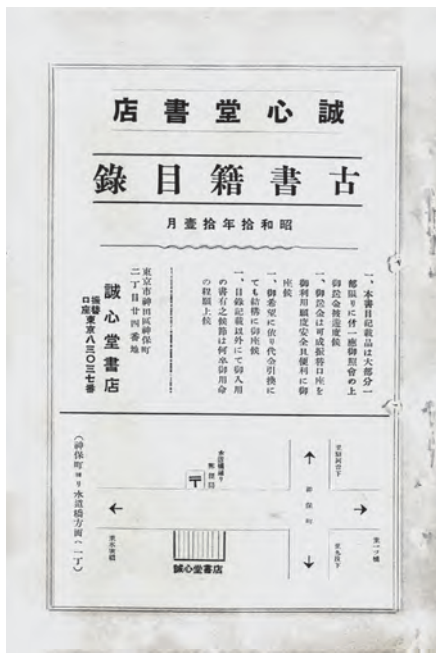 誠心堂書店
古書籍目錄
昭和拾年拾壹月
一、本書目記載品は大部分一
部限りに付一應御照會の上
御送金被遊度候
一、御送金は可成振替口座を
御利用願度安全且便利に御
座候
一、御希望に依り代金引換に
ても結構に御座候
一、目錄記載以外にて御入用
の書有之候節は何卒御用命
の程願上候
東京市神田區神保町
二丁目廿四番地
誠心堂書店
振替口座東京八三〇三七番
至駿河臺下
至一ツ橋
神保町
至九段下
水道橋通り
郵便局
〒
誠心堂書店
至水道橋
(神保町ヨリ水道橋方面へ一丁)